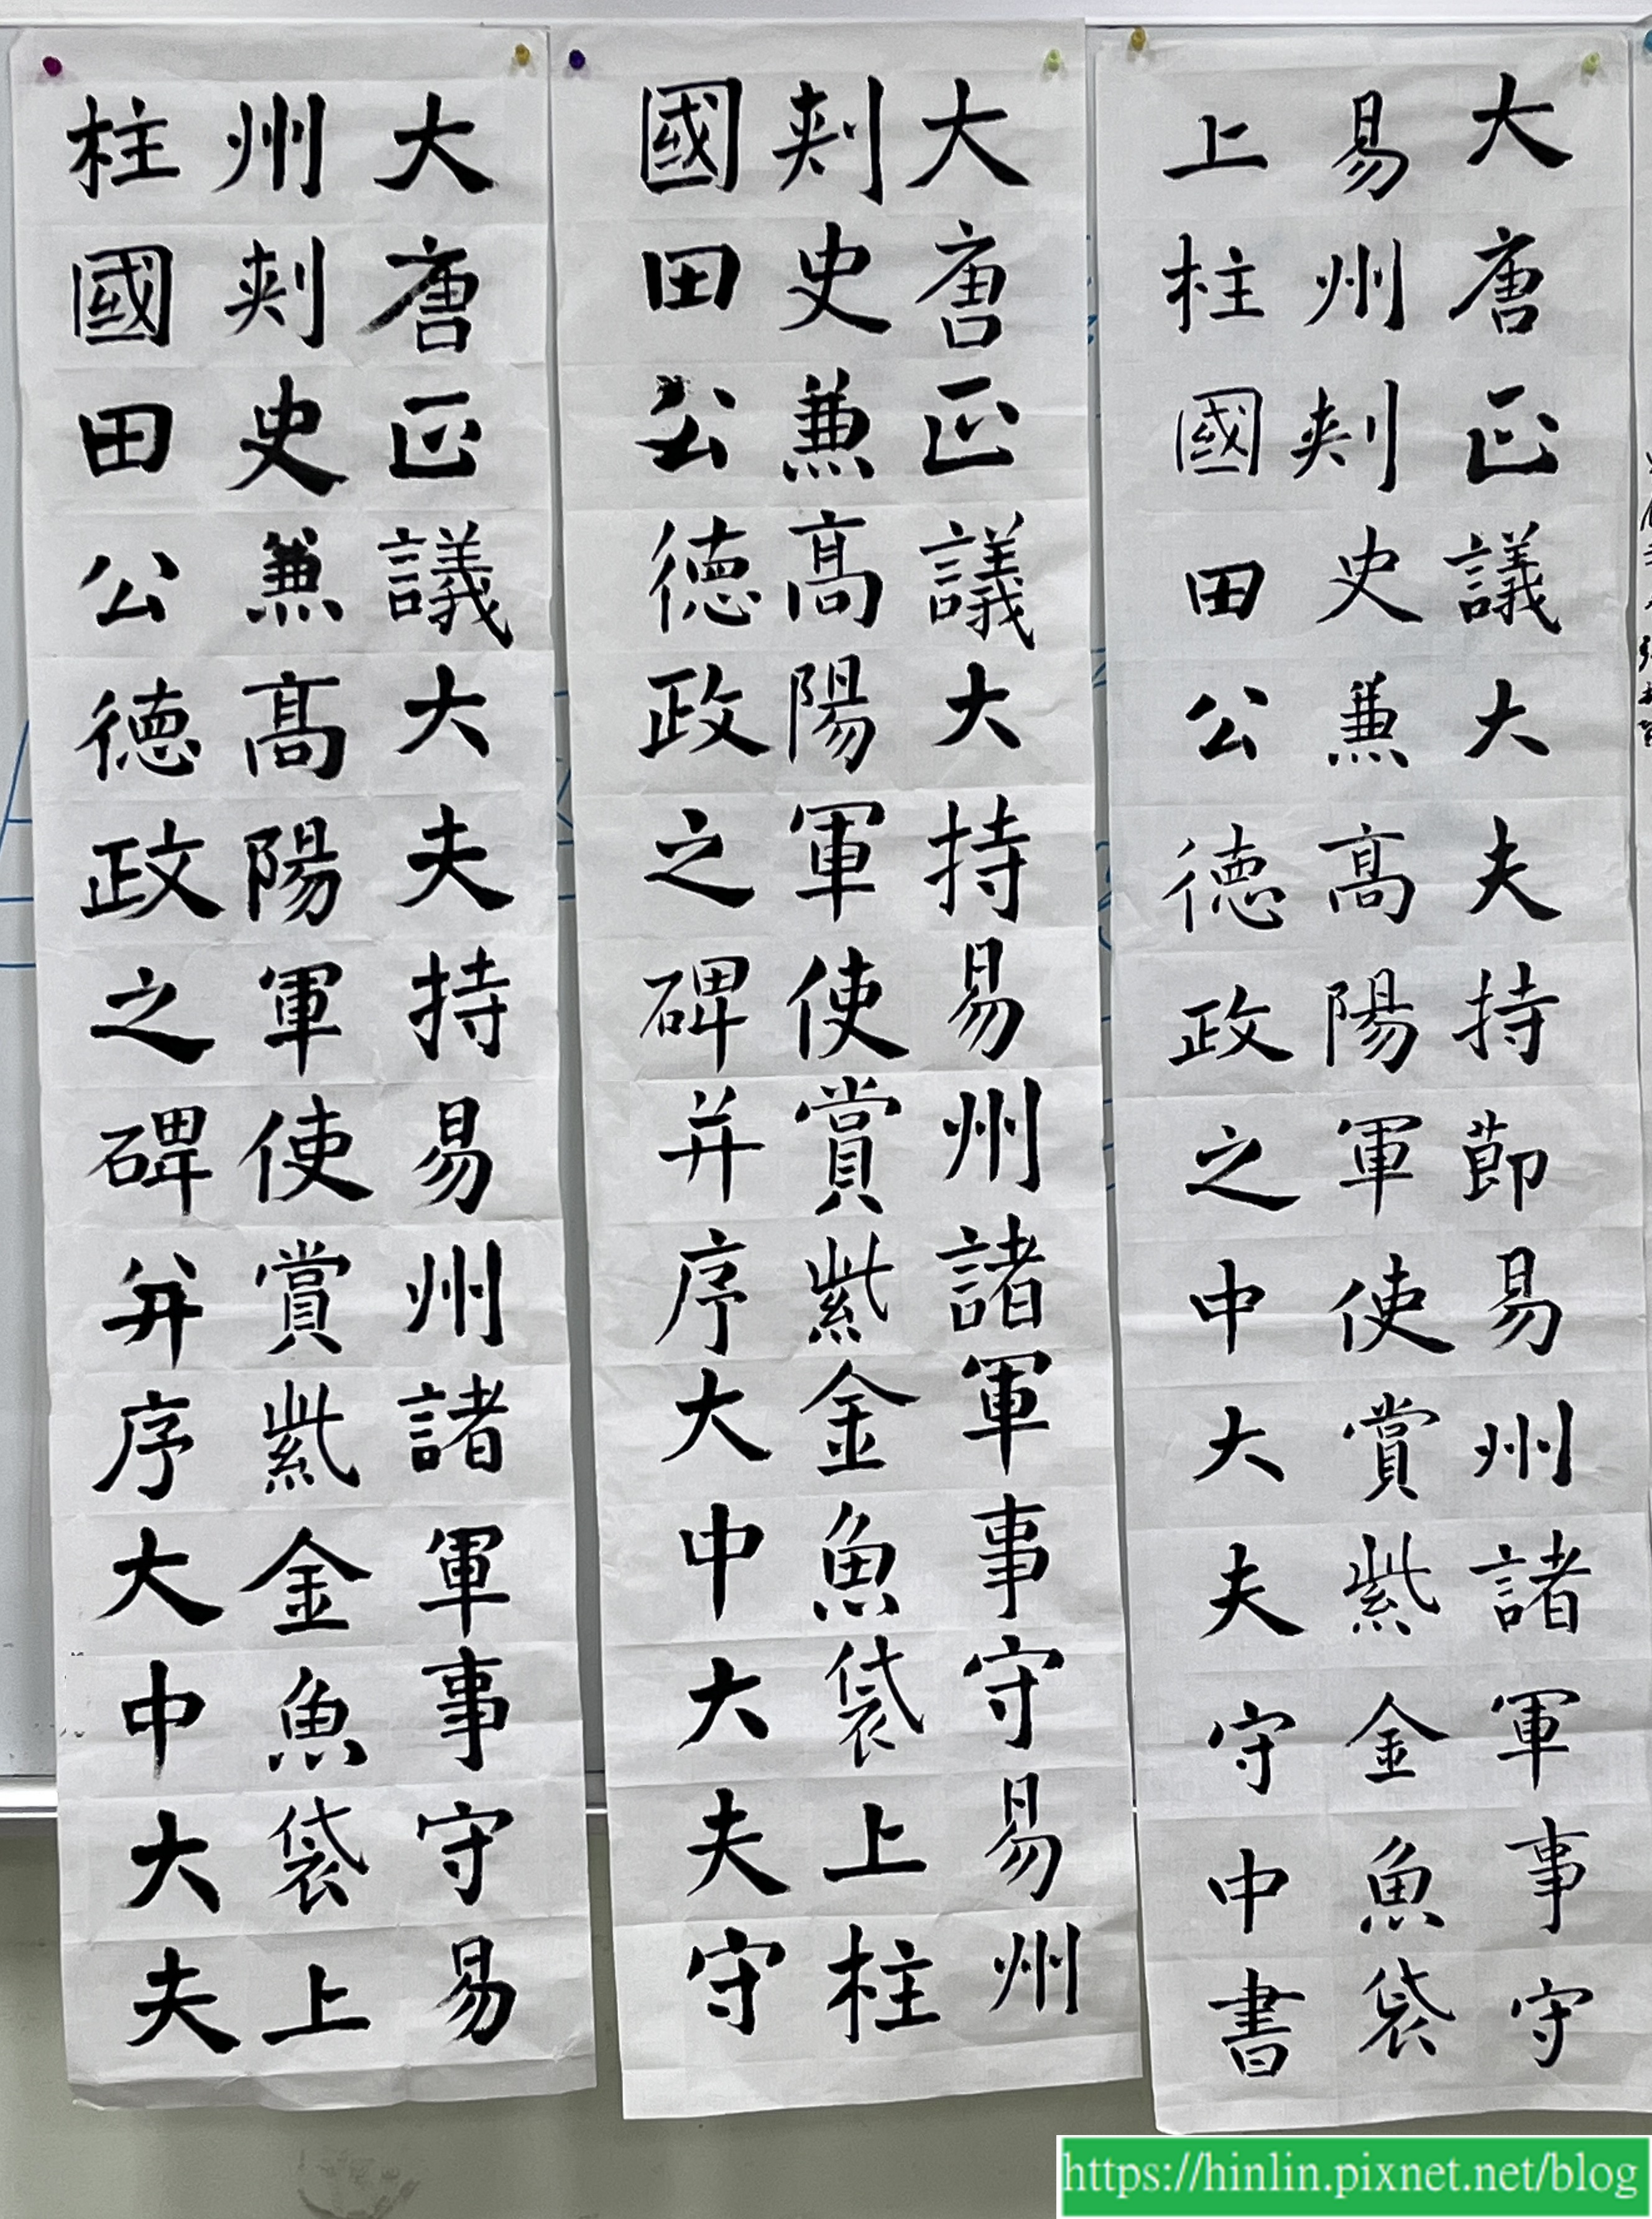 大唐正議大夫持節易州諸軍事守
易州刺史兼高陽軍使賞紫金魚袋
上柱國田公德政之中大夫守中書
大唐正議大持易州諸軍事守易州
刺史兼高陽軍使賞紫金魚袋上柱
國田公德政之碑并序大中大夫守
大唐正議大夫持易州諸軍事守易
州刺史兼高陽軍使賞紫金魚袋上
柱國田公德政之碑并序大中大夫
https://hinlin.pixnet.net/blog